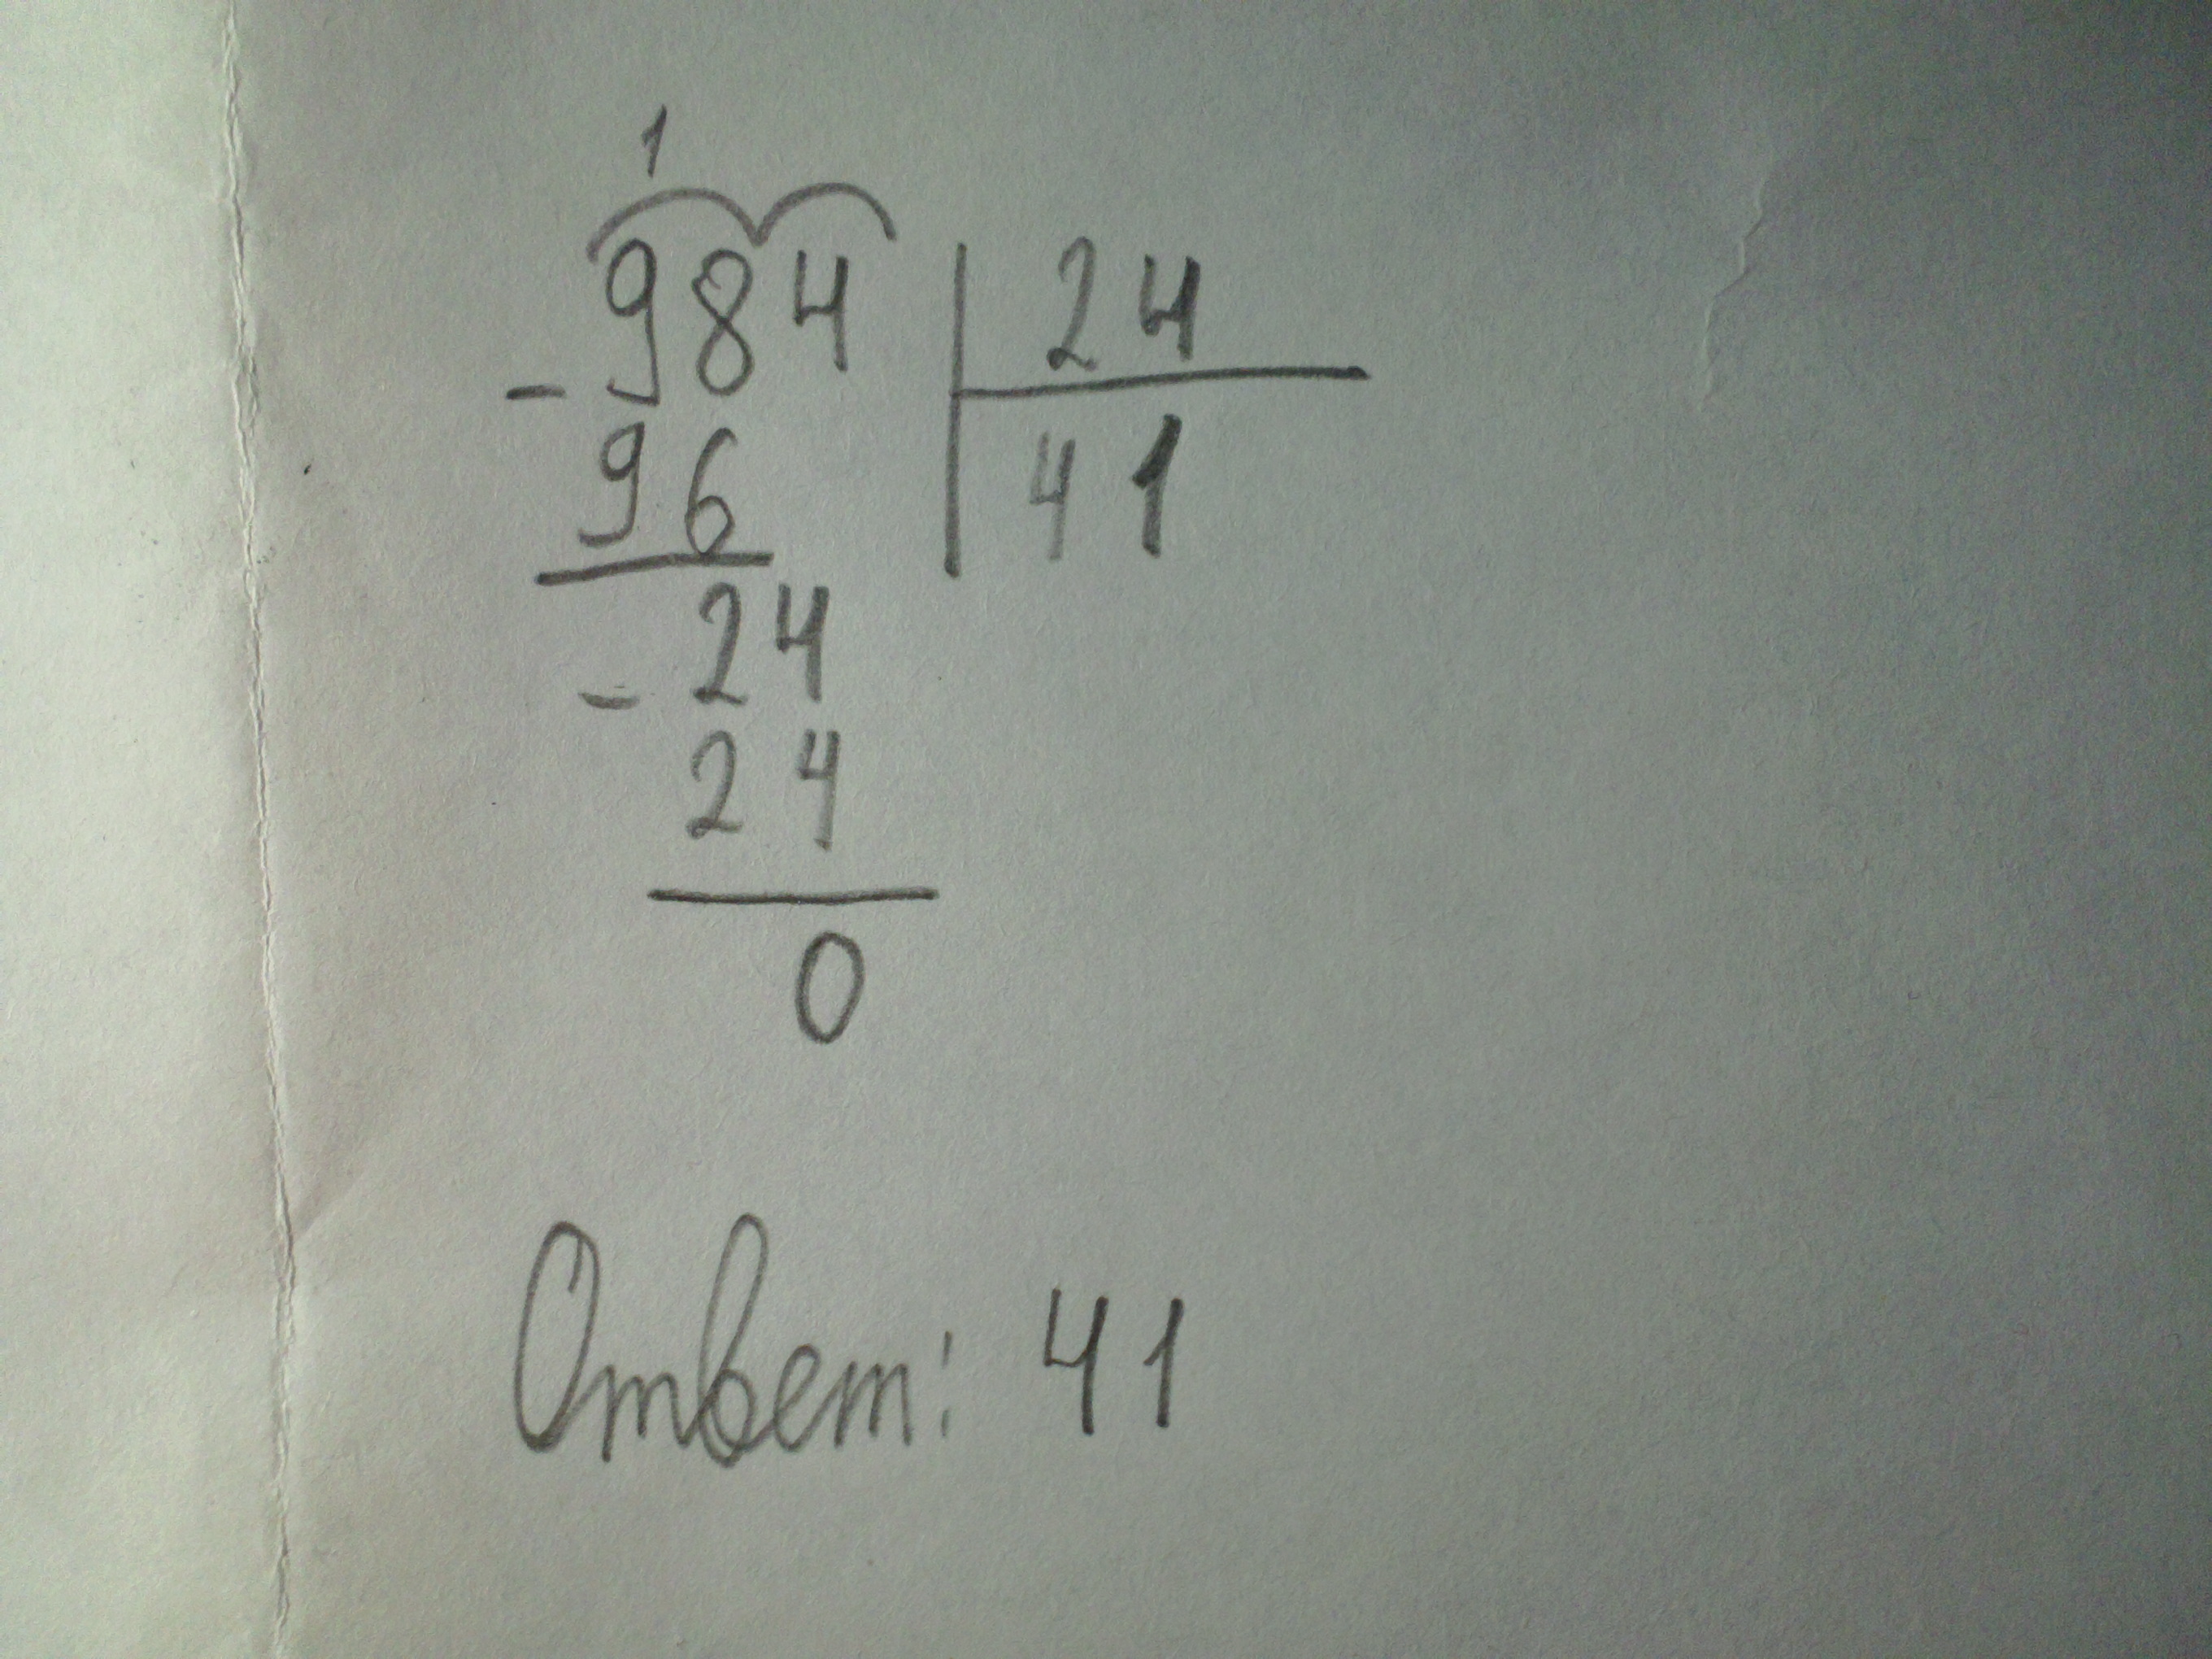 1
984 24
- 96 41
24
- 24
0
Ответ: 41